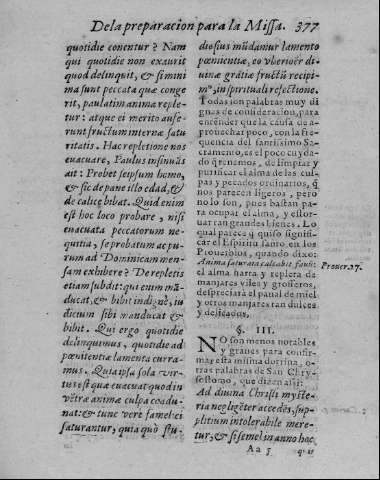 De la preparacion para la Missa. 377
quotidie conentur? Nam
qui quotidie non exaurit
quod delinquit, & si mini
ma sunt peccata quæ conge
rit, paulatim anima reple
tur: atque ei merito aufe-
runt fructum internæ satu
ritatis. Hac repletione nos
euacuare, Paulus insinuãs
ait: Probet seipsum homo,
& sic de pane illo edad, &
de calice bibat. Quid enim
est hoc loco probare, nisi
euacuata peccatorum ne-
quitia, se probatum ac pu-
rum ad Dominicam men-
sam exhibere? De repletis
etiam subdit: qui enim mã-
ducat, & bibit indignè, iu
dicium sibi manducat &
bibit. Qui ergo quotidie
delinquimus, quotidie ad
pœnitentiæ lamenta curra
mus. Quia ipsa sola vir-
tus est quæ euacuat quod in
vẽtre animæ culpa coadu-
nat: & tunc verè famelici
saturantur, quia quò stu-
diosius mũdamur lamento
pœnitentiæ, eo vberiorẽ di-
uinæ gratiæ fructũ recipi-
mo, in spirituali refectione.
Todas son palabras muy di
gnas de consideracion, para
entender que la causa de a-
prouechar poco, con la fre-
quencia del santissimo Sa-
cramento, es el poco cuyda-
do q̃ tenemos, de limpiar y
purificar el alma de las cul-
pas y pecados ordinarios, q̃
nos parecen ligeros, pero
no lo son, pues bastan pa-
ra ocupar el alma, y estor-
uar tan grandes bienes. Lo
qual parece q̃ quiso signifi-
car el Espiritu santo en los
Prouerbios, quando dixo:
Anima saturata calcabit fauũ:
Prouer. 27.
el alma harta y repleta de
manjares viles y grosseros,
despreciará el panal de miel
y otros manjares tan dulces
y desseados.
§. III.
NO son menos notables
y graues para confir-
mar esta misma dotrina, o-
tras palabras de San Chry-
sostomo, que dizen assi:
Ad diuina Christi myste-
ria negligẽter accedẽs, sup-
plitium intolerabile mere-
tur, & si semel in anno hoc
Aa 5